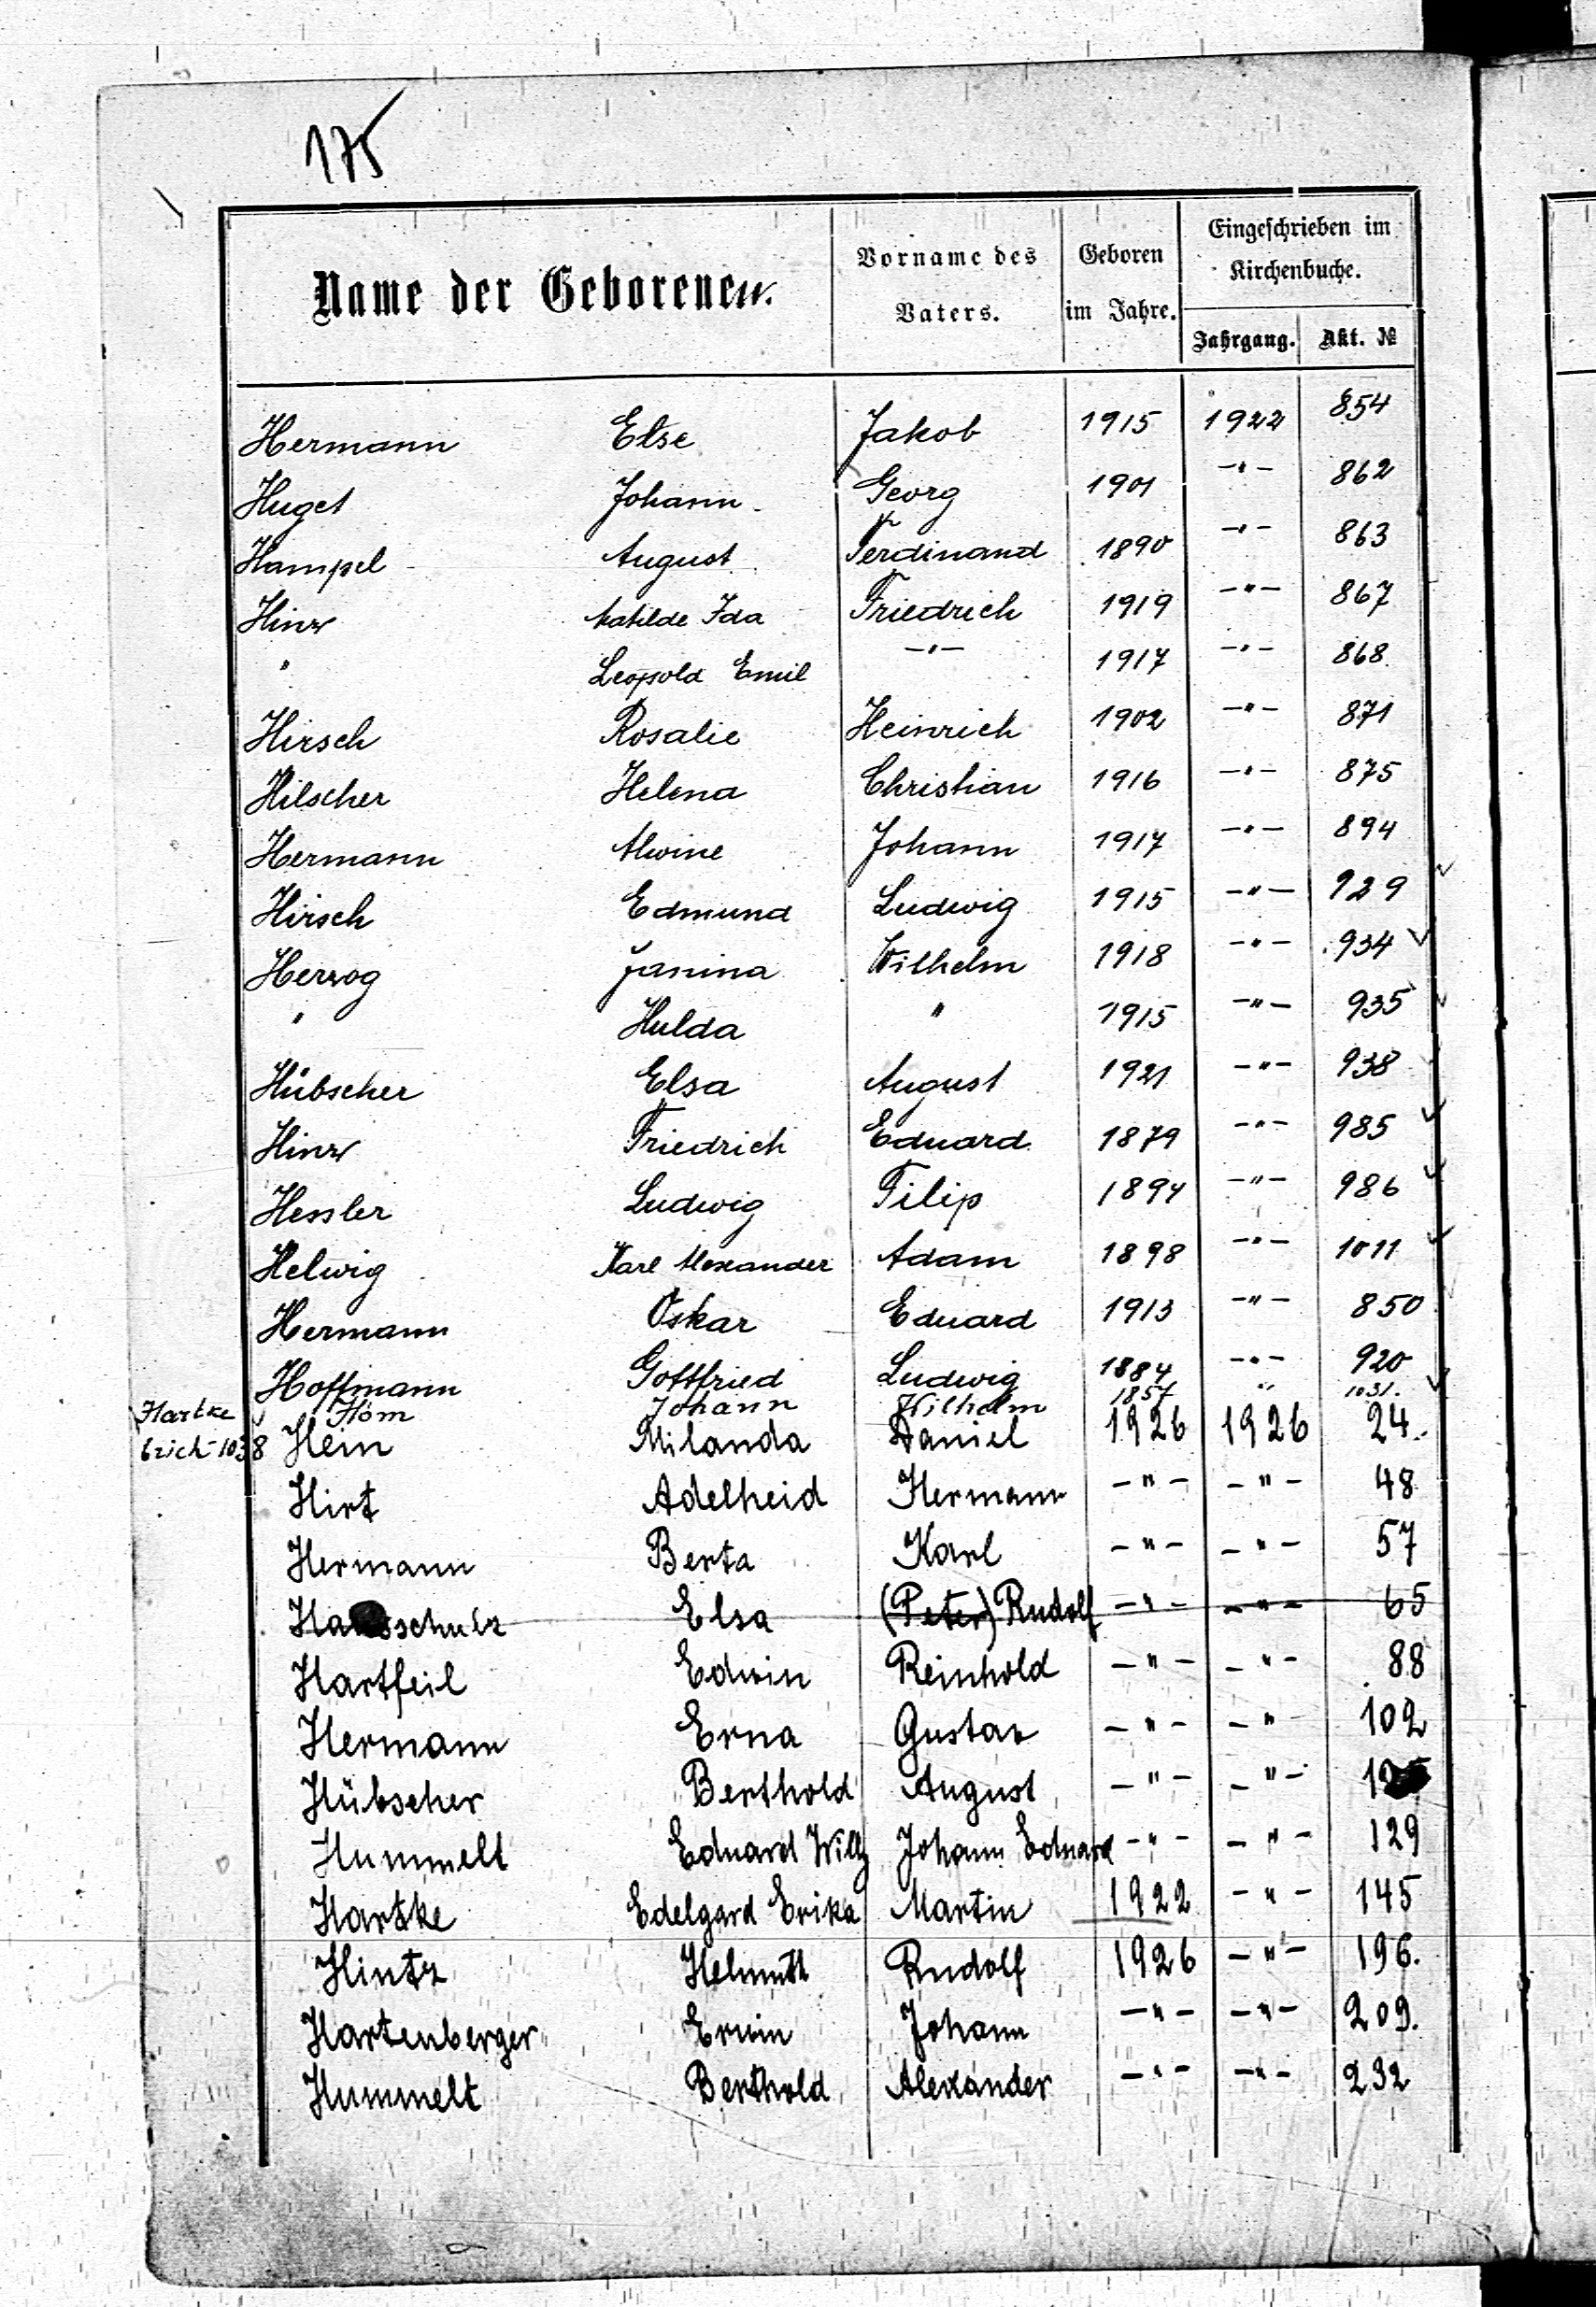 175
Name der Geborenen. Vorname des Vaters. Geboren im Jahre. Eingeschrieben im Kirchenbuche.
Jahrgang. Akt. №
Hermann Else Jakob 1915 1922 854
Huget Johann Georg 1901 -"- 862
Hampel August Ferdinand 1890 -"- 863
Hinz Matilde Ida Friedrich 1919 -"- 867
" Leopold Emil -"- 1917 -"- 868
Hirsch Rosalie Heinrich 1902 -"- 871
Hilscher Helena Christian 1916 -"- 875
Hermann Alwine Johann 1917 -"- 894
Hirsch Edmund Ludwig 1915 -"- 929
Herzog Janina Wilhelm 1918 -"- 934
" Hulda " 1915 -"- 935
Hübscher Elsa August 1921 -"- 938
Hinz Friedrich Eduard 1879 -"- 985
Hessler Ludwig Filip 1894 -"- 986
Helwig Karl Alexander Adam 1898 -"- 1011
Hermann Oskar Eduard 1913 -"- 850
Hoffmann Gottfried Ludwig 1884 -"- 920
Höm Johann Wilhelm 1857 " 1031.
Hartke
Erich-1038
Hein Milanda Daniel 1926 1926 24.
Hirt Adelheid Hermann -"- -"- 48
Hermann Berta Karl -"- -"- 57
Elsa (Peter) Rudolf -"- -"- 65
Hartfeil Edwin Reinhold -"- -"- 88
Hermann Erna Gustav -"- -" 102
Hübscher Berthold August -"- -"-
Hummelt Eduard Willy Johann Eduard -"- -"- 129
Hartke Edelgard Erika Martin 1922 -"- 145
Hintz Helmuth Rudolf 1926 -"- 196.
Hartenberger Erwin Johann -"- -"- 209.
Hummelt Berthold Alexander -"- -"- 232